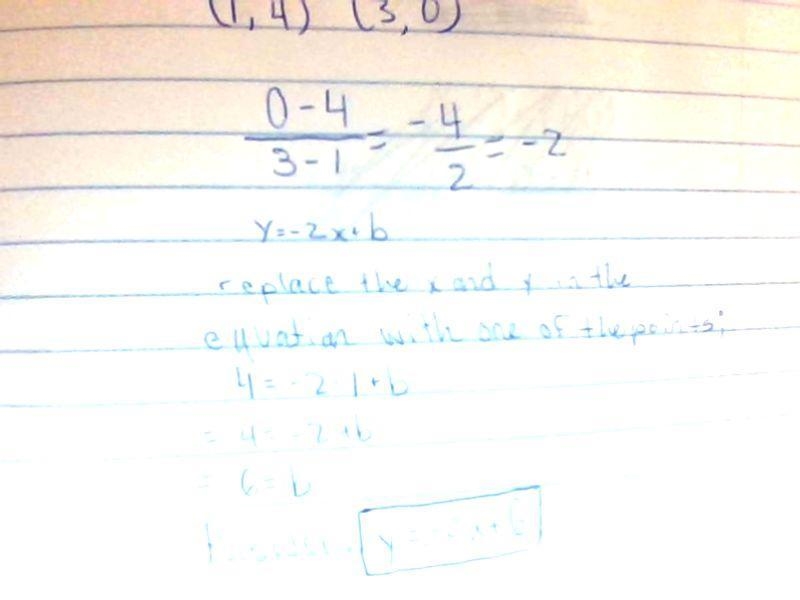 (1, 4) (3, 0)
0-4/3-1 = -4/2 = -2
y=-2x+b
replace the x and y in the
equation with one of the points;
4=-2·1+b
= 4=-2+b
= 6=b
y=-2x+6